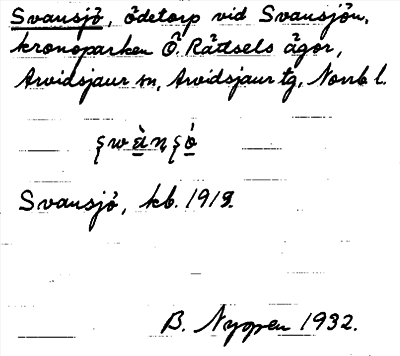 Svansjö, ödetorp vid Svansjön,
kronoparken Ö. Rättsels ägor,
Arvidsjaur sn, Arvidsjaur tg, Norrb l.
Svansjö, kb. 1919.
B. Nygren 1932.